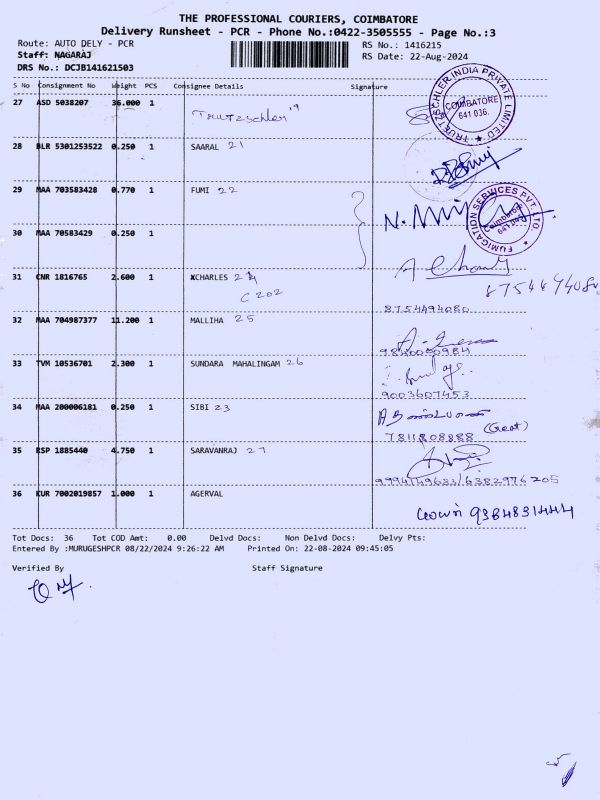 THE PROFESSIONAL COURIERS, COIMBATORE
Delivery Runsheet - PCR - Phone No.:0422-3505555 - Page No.:3
Route: AUTO DELY - PCR
RS No.: 1416215
Staff: NAGARAJ
RS Date: 22-Aug-2024
DRS No.: DCJB141621503
S No Consignment No Weight PCS Consignee Details Signature
27 ASD 5038207 36.000 1 Trutzschler 19
TRUETZSCHLER INDIA PRIVATE LIMITED
COIMBATORE
641 036.
28 BLR 5301253522 0.250 1 SAARAL 21
29 MAA 703583428 0.770 1 FUMI 22
FUMIGATION SERVICES PVT. LTD
Coimbatore
30 MAA 70583429 0.250 1
31 CNR 1816765 2.600 1 XCHARLES 24
C 202
8754494080
32 MAA 704987377 11.200 1 MALLIHA 25
9840050984
33 TVM 10536701 2.300 1 SUNDARA MAHALINGAM 26
9003607453
34 MAA 200006181 0.250 1 SIBI 23
7811808888
35 RSP 1885440 4.750 1 SARAVANRAJ 27
9994149633/6382976205
36 KUR 7002019857 1.000 1 AGERVAL
9364831444
Tot Docs: 36 Tot COD Amt: 0.00 Delvd Docs: Non Delvd Docs: Delvy Pts:
Entered By :MURUGESHPCR 08/22/2024 9:26:22 AM Printed On: 22-08-2024 09:45:05
Verified By Staff Signature